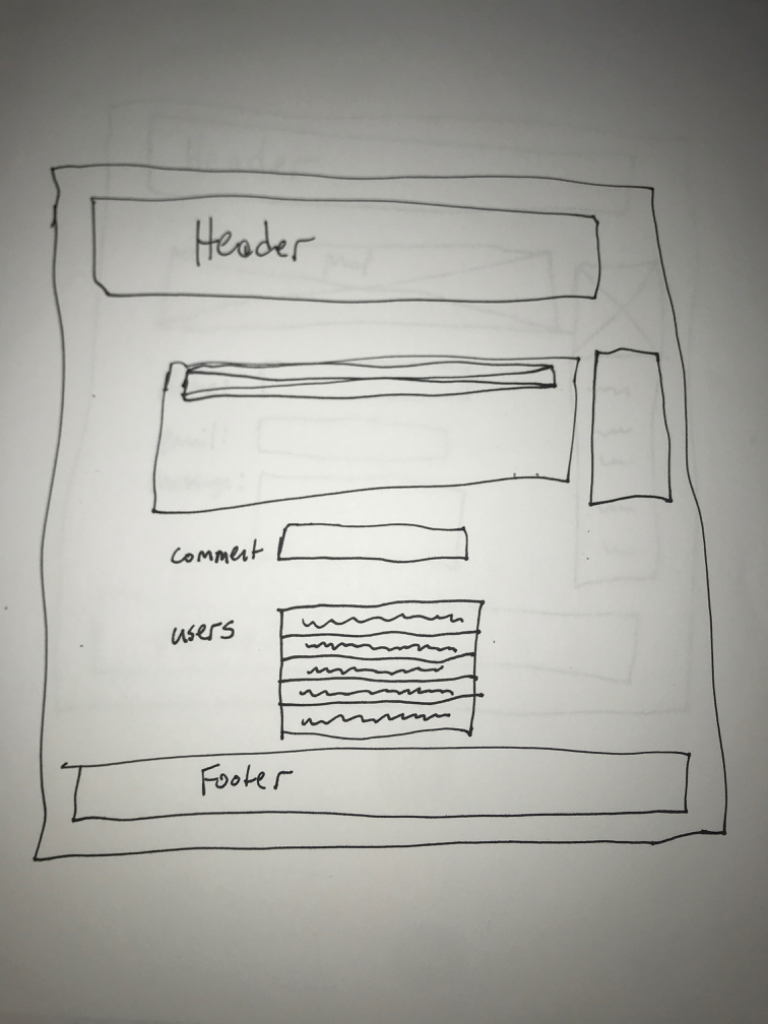 Header
comment
users
Footer